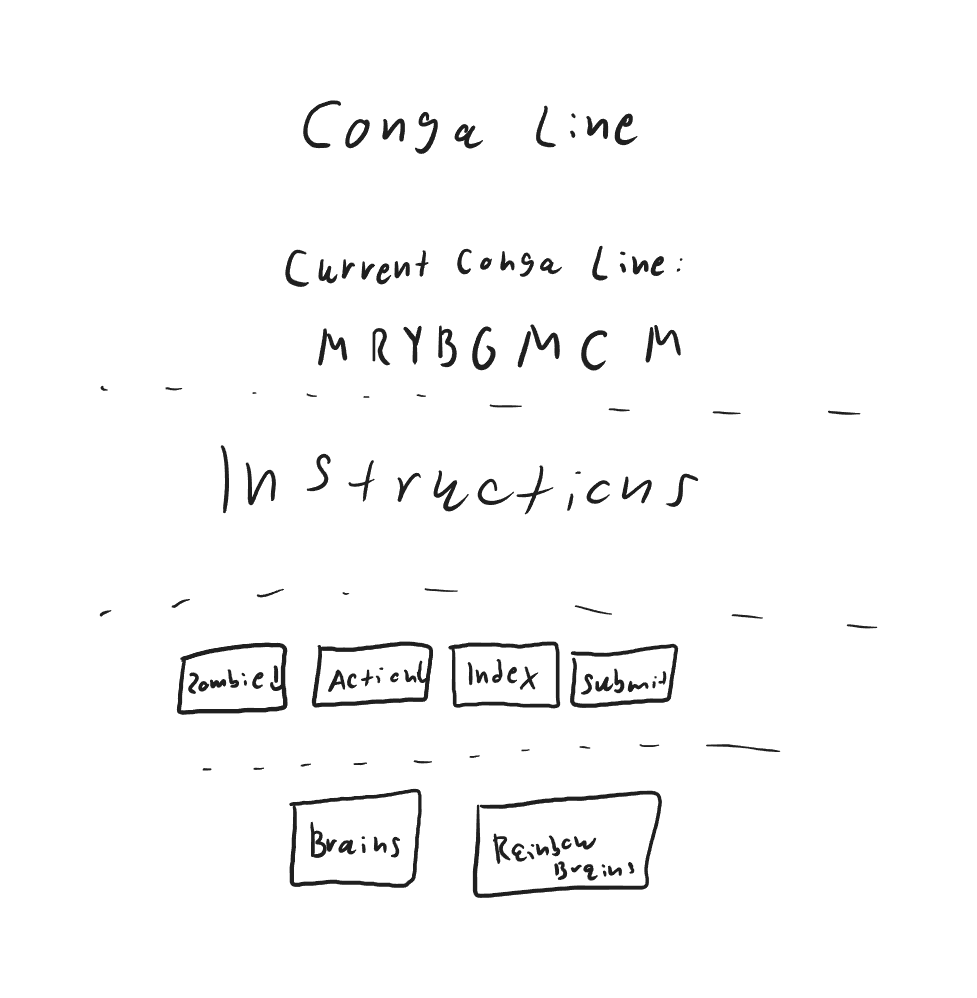 Conga Line
Current Conga Line:
M R Y B G M C M
Instructions
Zombie↓
Action↓
Index
Submit
Brains
Rainbow
Brains